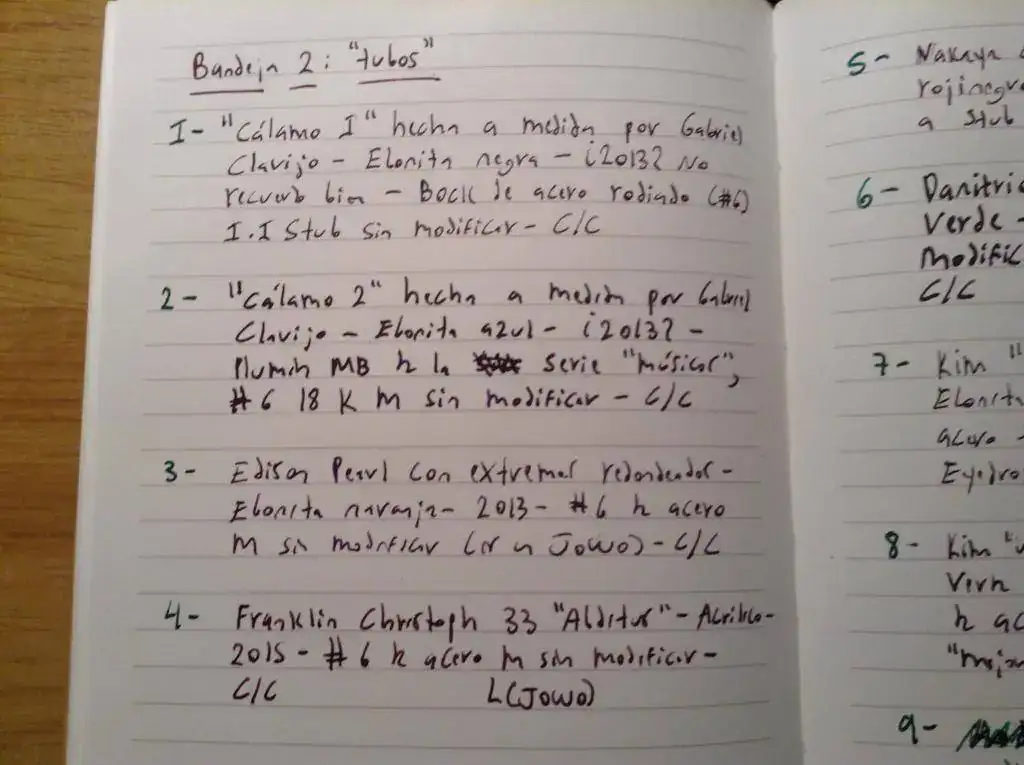 Bandeja 2: "tubos"
1- "Cálamo I" hecha a medida por Gabriel
Clavijo - Ebonita negra - ¿2013? No
recuerdo bien - Bock de acero rodiado (#6)
1.1 Stub sin modificar - C/C
2- "Cálamo 2" hecha a medida por Gabriel
Clavijo - Ebonita azul - ¿2013? -
Plumín MB de la serie "músicos",
#6 18 K M sin modificar - C/C
3- Edison Pearl con extremos redondeados -
Ebonita naranja - 2013 - #6 de acero
M sin modificar (es un JoWo) - C/C
4- Franklin Christoph 33 - Acrílico -
2015 - #6 de acero M sin modificar -
C/C (JoWo)
5- Nakaya
rojinegr
a Stub
6- Danitri
Verde -
Modific
C/C
7- Kim "
Ebonit
acero -
Eyedro
8- Kim "
Verde
de ac
9-